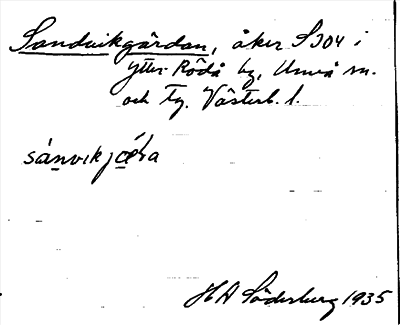 Sandvikgärdan, åker S304 i
Ytter-Rödå by, Umeå sn.
och Tg. Västerb. l.
sánvikjœ́ɽa
H A Söderberg 1935